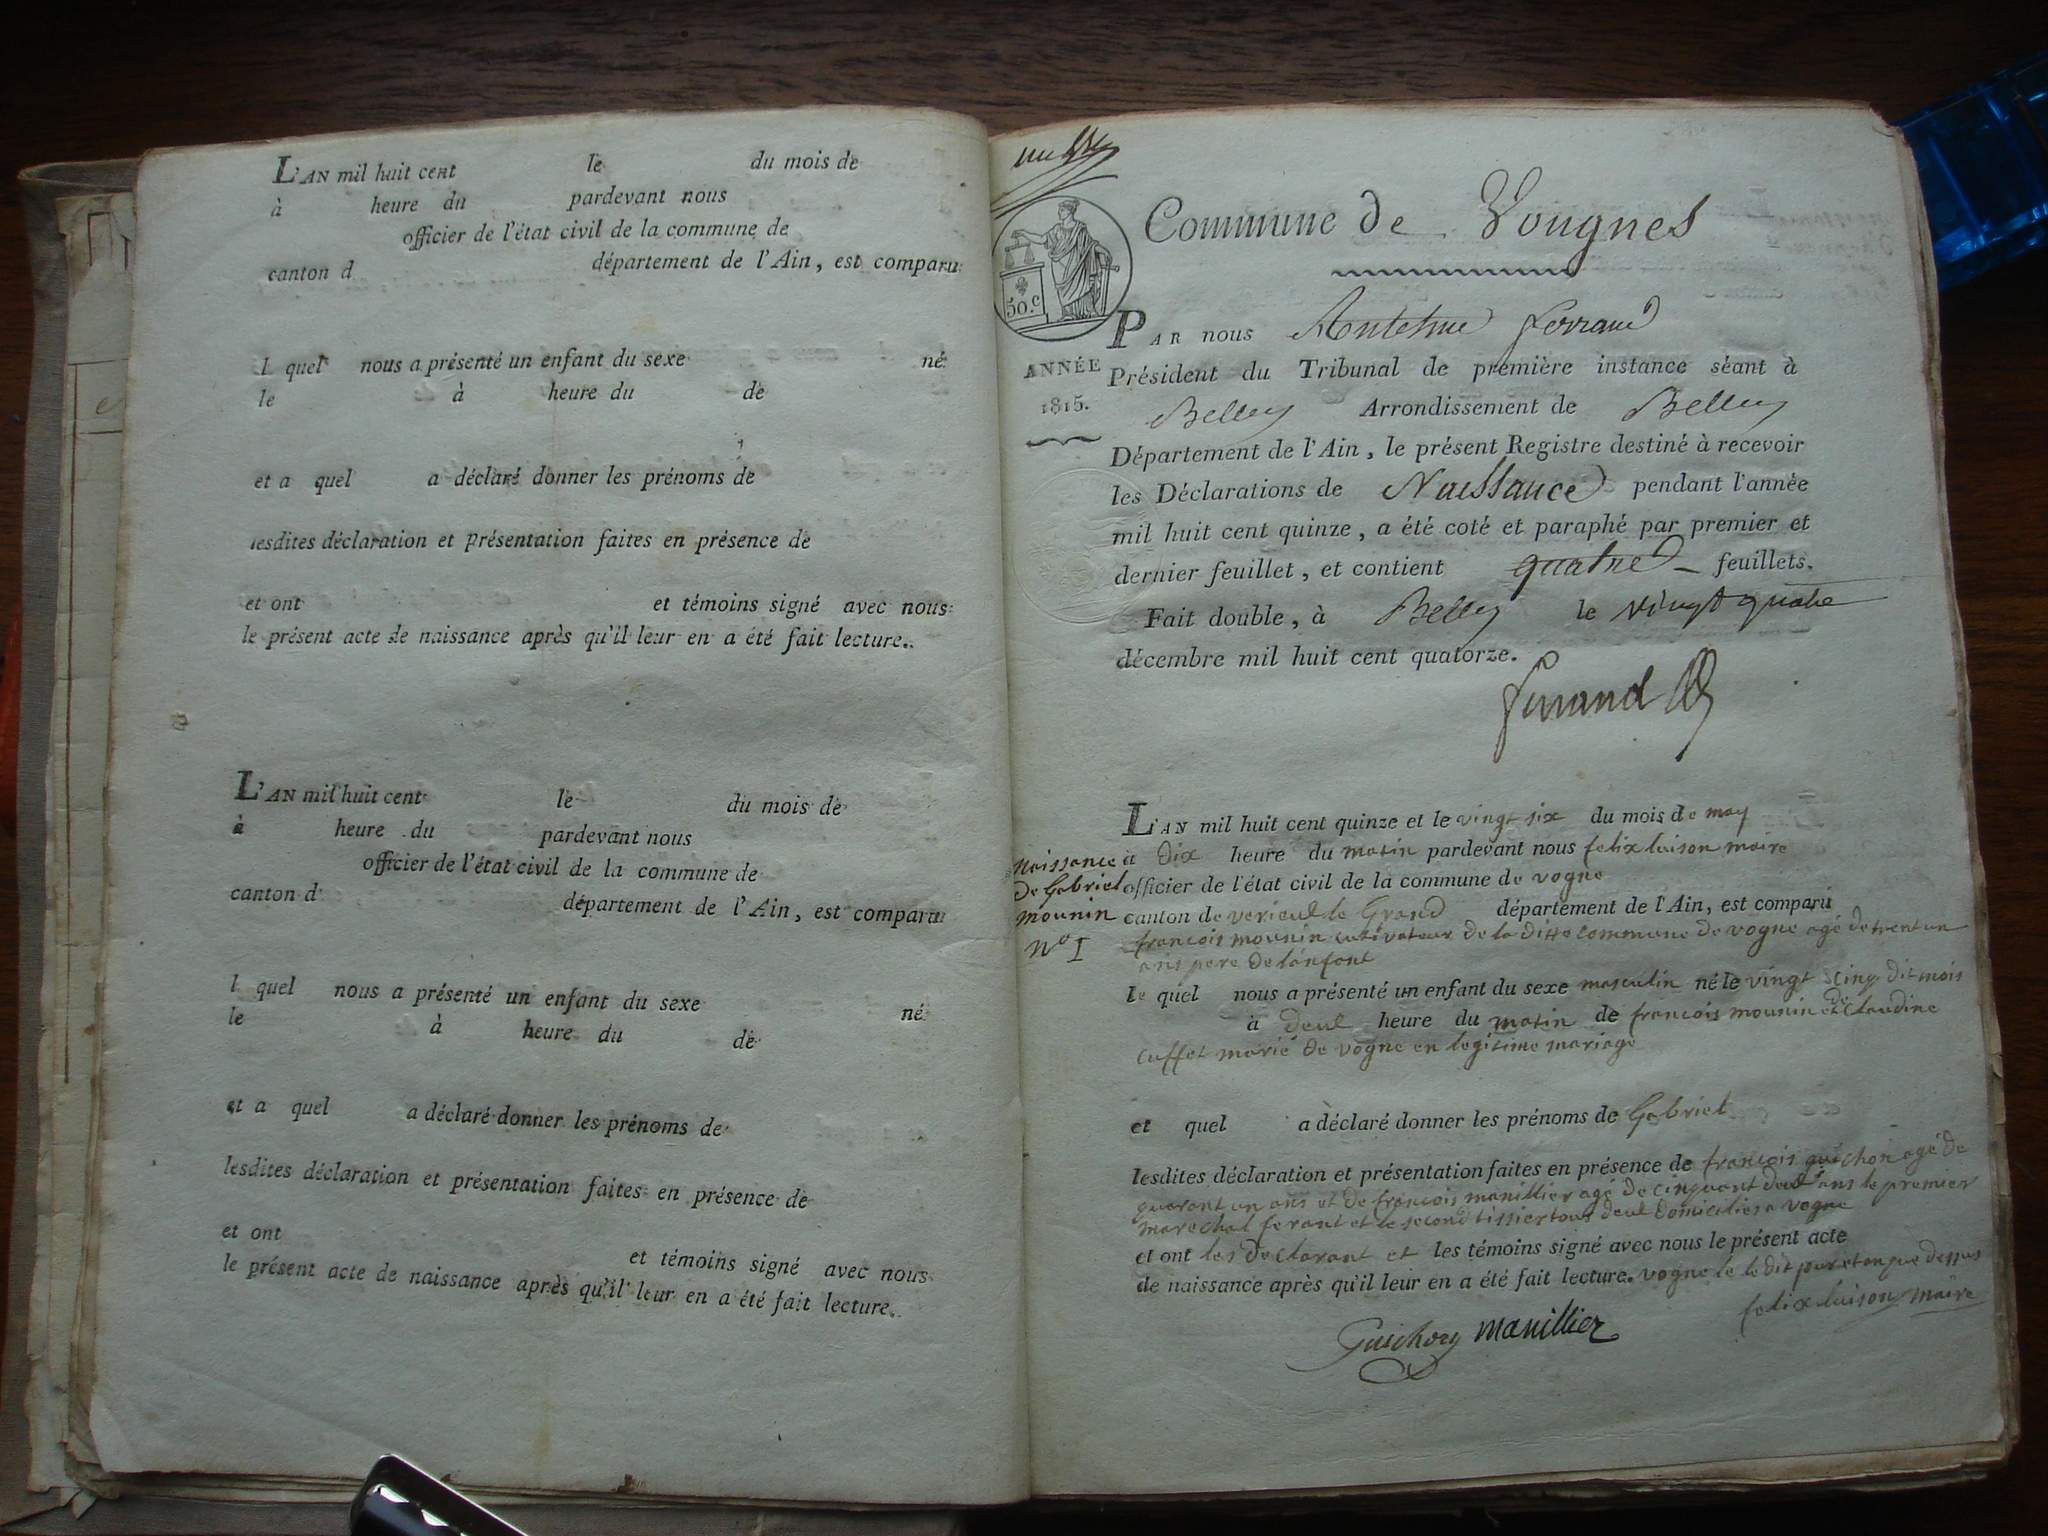 L'AN mil huit cent le du mois de
à heure du pardevant nous
officier de l'état civil de la commune de
canton d département de l'Ain, est comparu
l quel nous a présenté un enfant du sexe né
le à heure du de
et a quel a déclaré donner les prénoms de
lesdites déclaration et présentation faites en présence de
et ont et témoins signé avec nous
le présent acte de naissance après qu'il leur en a été fait lecture.
L'AN mil huit cent le du mois de
à heure du pardevant nous
officier de l'état civil de la commune de
canton d département de l'Ain, est comparu
l quel nous a présenté un enfant du sexe né
le à heure du de
et a quel a déclaré donner les prénoms de
lesdites déclaration et présentation faites en présence de
et ont et témoins signé avec nous
le présent acte de naissance après qu'il leur en a été fait lecture.
50.c
ANNÉE
1815.
Commune de Vougnes
PAR nous Antelme ferrand
Président du Tribunal de première instance séant à
Belley Arrondissement de Belley
Département de l'Ain, le présent Registre destiné à recevoir
les Déclarations de Naissance pendant l'année
mil huit cent quinze, a été coté et paraphé par premier et
dernier feuillet, et contient quatre feuillets.
Fait double, à Belley le vingt quatre
décembre mil huit cent quatorze.
ferrand
Naissance
de Gabriel
mounin
n° I
L'AN mil huit cent quinze et le vingt six du mois de may
à dix heure du matin pardevant nous felix luison maire
officier de l'état civil de la commune de vogne
canton de verieul le Grand département de l'Ain, est comparu
francois mounin cutivateur de la ditte commune de vogne agé de trent un
ans pere de lanfant
le quel nous a présenté un enfant du sexe masculin né le vingt cinq dit mois
à deul heure du matin de francois mounin et de claudine
cuffet marié de vogne en legitime mariage
et quel a déclaré donner les prénoms de Gabriel
lesdites déclaration et présentation faites en présence de francois guichon agé de
quarant un ans et de francois manillier agé de cinquant deul ans le premier
marechal ferant et le second tissier tous deul domicilies a vogne
et ont les declarant et les témoins signé avec nous le présent acte
de naissance après qu'il leur en a été fait lecture. vogne le dit que dessus
felix luison maire
Guichon manillier